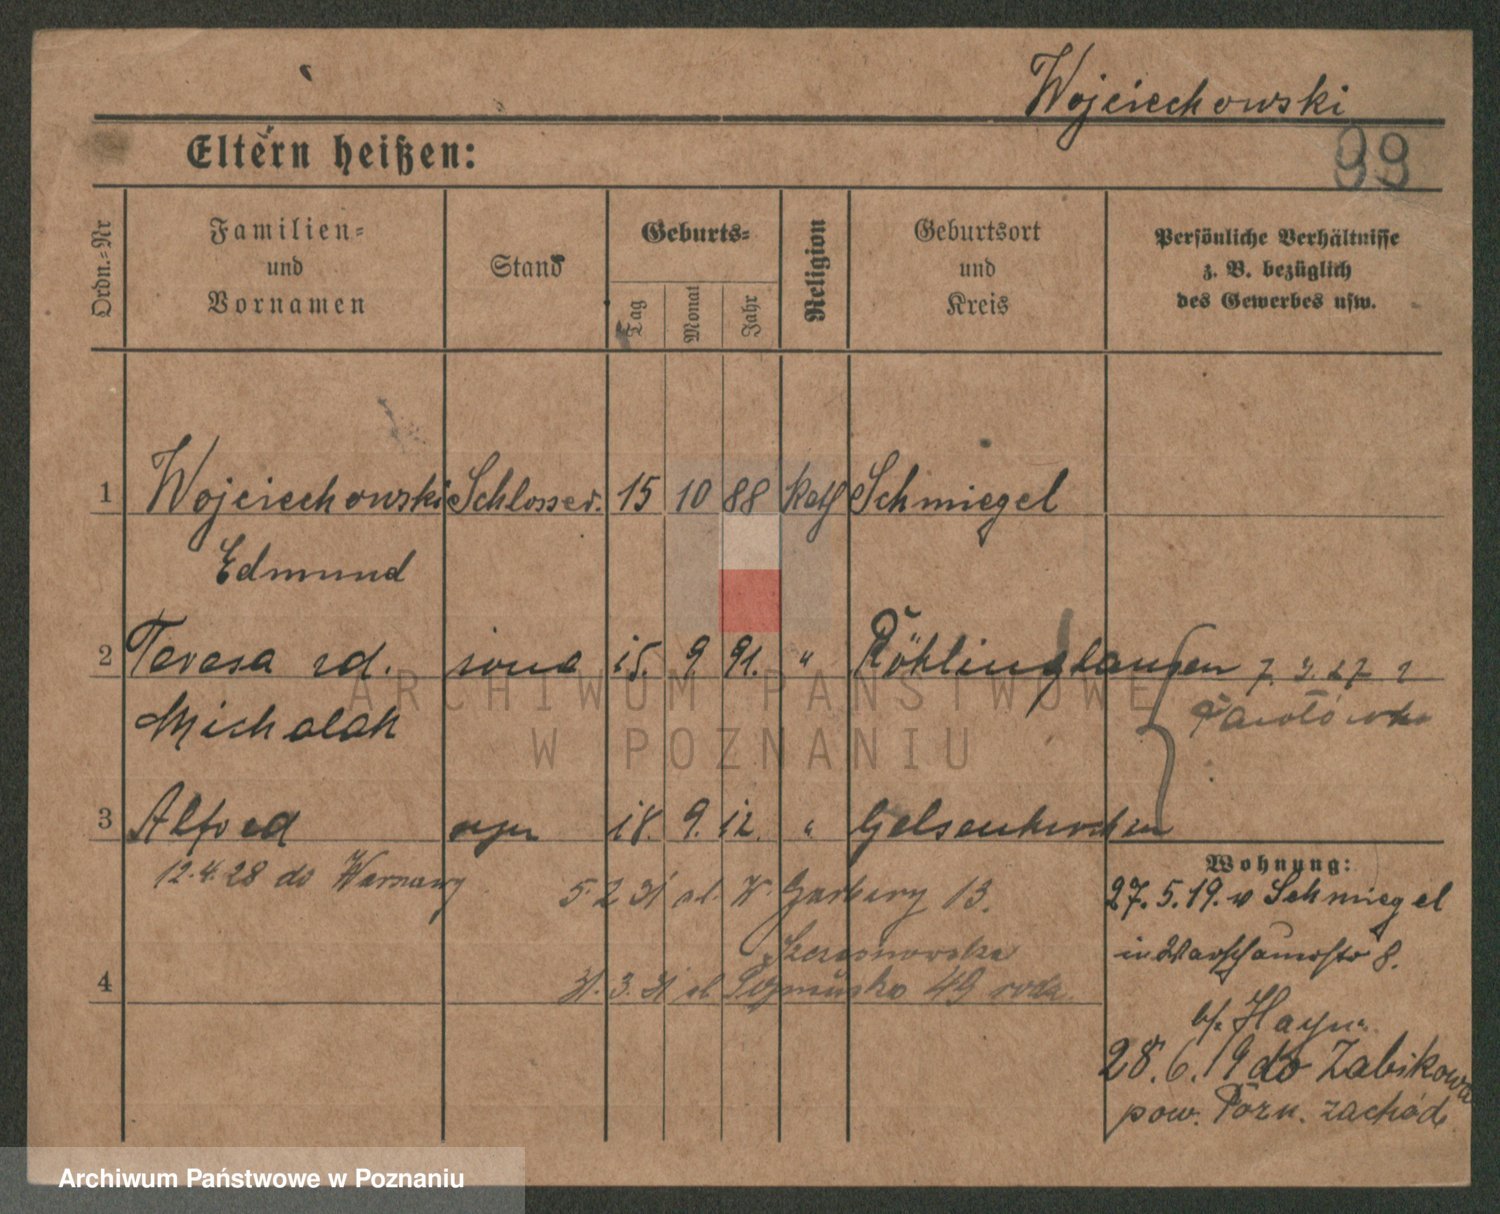 Wojciechowski
99
Eltern heißen:
Ordn.=Nr
Familien=
und
Vornamen
Stand
Geburts=
Tag
Monat
Jahr
Religion
Geburtsort
und
Kreis
Persönliche Verhältnisse
z. B. bezüglich
des Gewerbes usw.
1 Wojciechowski Schlosser. 15 10 88 Kath Schmiegel
Edmund
2 Teresa rd. żona 15. 9. 91. " Röhlinghausen 7. 3. 27
Michalak
3 Alfred syn 18. 9. 12. " Gelsenkirchen
12.4.28 do Warszawy
5 2 31 ul. W. Garbary 13.
Wohnung:
27.5.19. v Schmiegel
in Warschauerstr 8.
4 31. 3. 31 ul 49
b/. Haym
28.6.19 do Żabikowa
pow. Pozn. zachód
ARCHIWUM PAŃSTWOWE
W POZNANIU
Archiwum Państwowe w Poznaniu